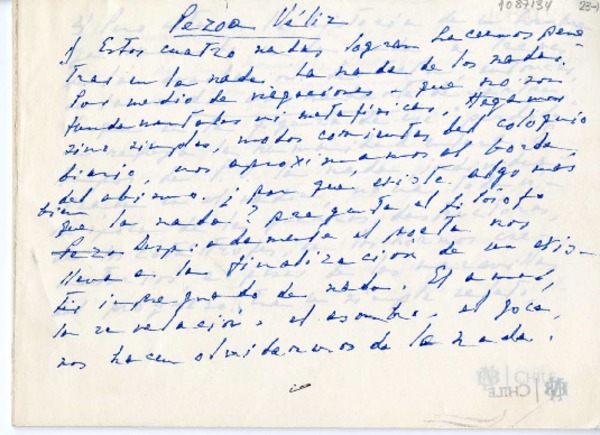 1087134 23-1
Pezoa Véliz
1) Estos cuatro nadas logran hacernos pene
trar en la nada. La nada de los nadas.
Por medio de negaciones - que no son
fundamentales ni metafísicas, llegamos
sino simples, modos corrientes del coloquio
diario, nos aproximamos al borde
del abismo. ¿por qué existe algo más
bien
que la nada? pregunta el filósofo
Pezoa Despiadamente el poeta nos
lleva a la finalización de un exis-
te impregnado de nada. El amor,
la revelación, el asombro, el goce,
nos hacen olvidarnos de la nada.
CHILE
CHILE